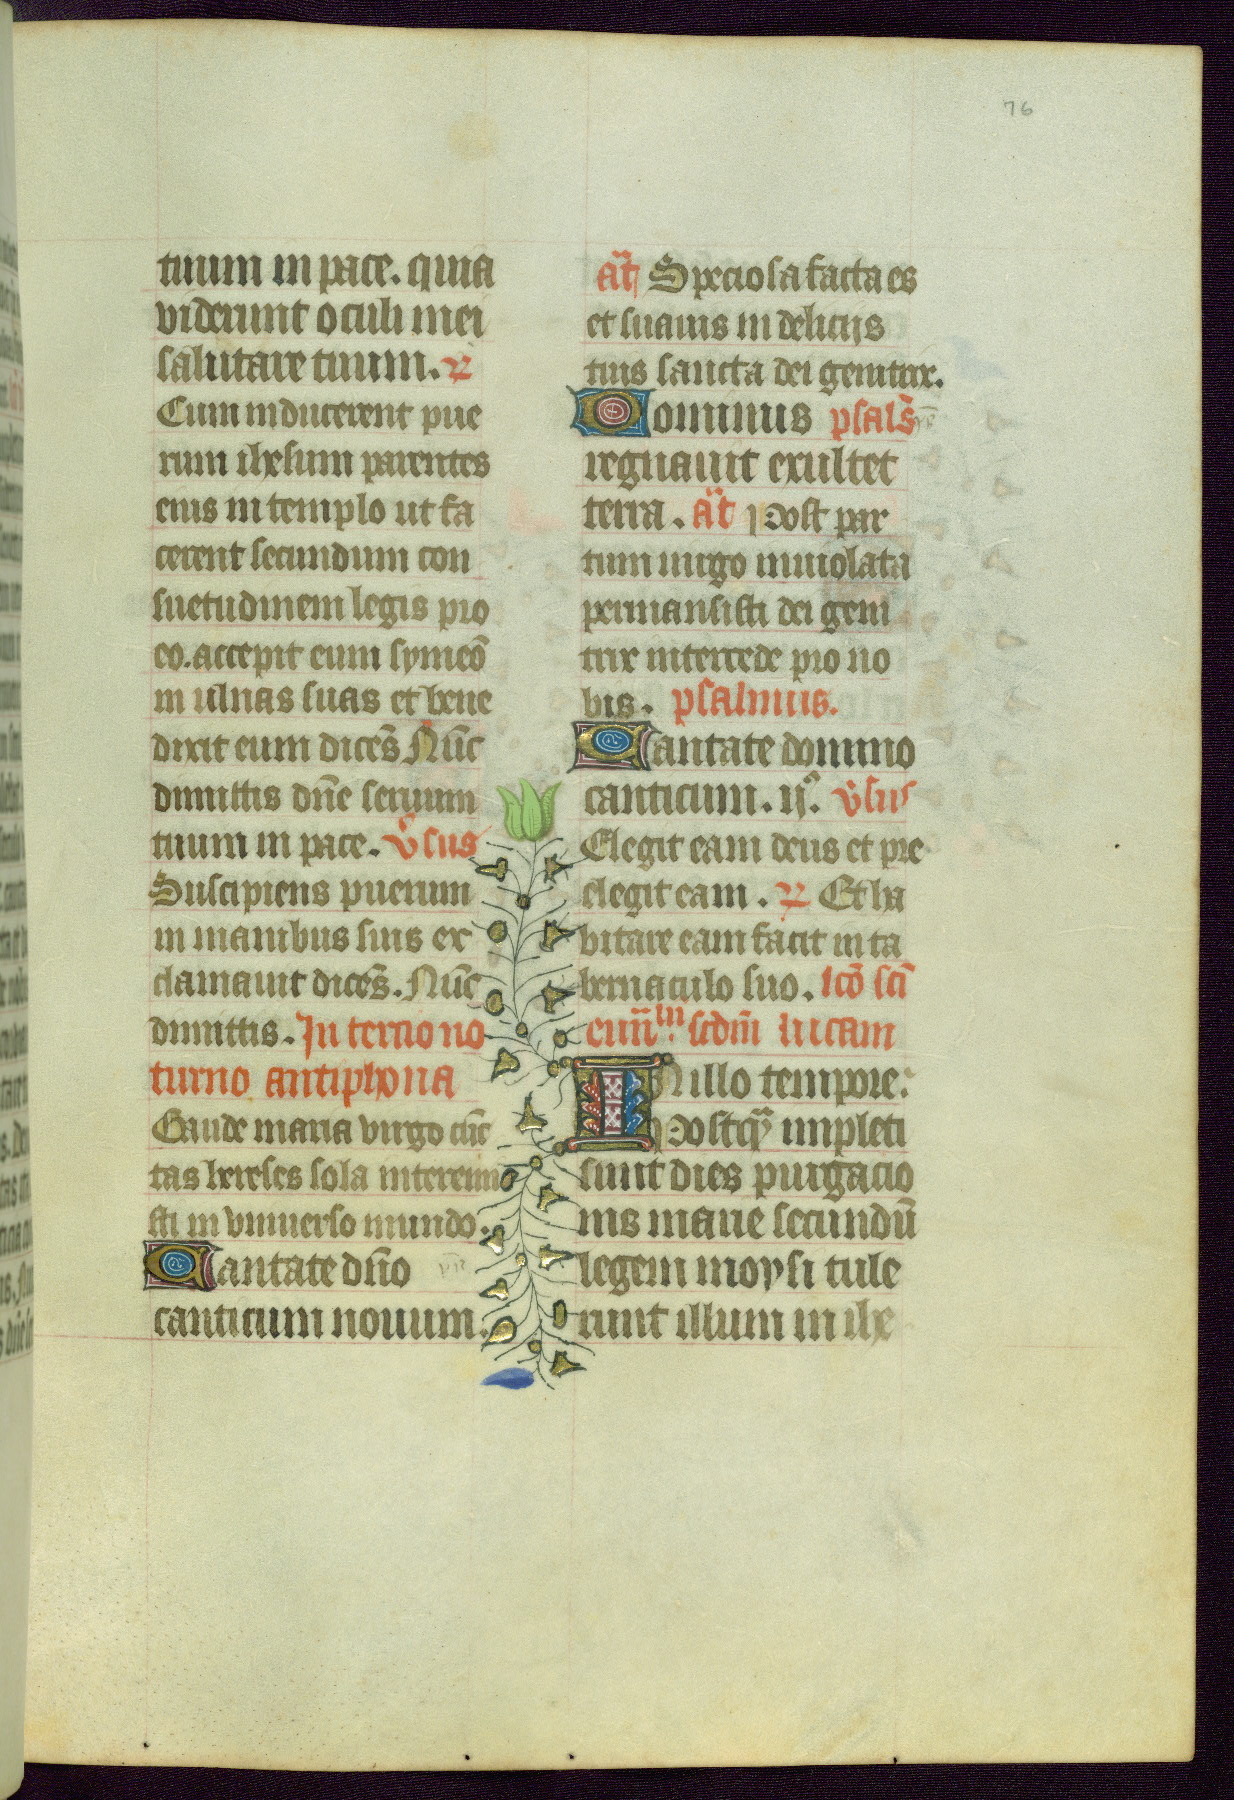 76
tuum in pace. quia
viderunt oculi mei
salutare tuum. R
Cum inducerent pue
rum ihesum parentes
eius in templo ut fa
cerent secundum con
suetudinem legis pro
eo. accepit eum symeō
in ulnas suas et bene
dixit eum dicēs Nūc
dimittis dn̄e seruum
tuum in pace. v̄sus
Suscipiens puerum
in manibus suis ex
clamauit dicēs. Nūc
dimittis. In tercio no
turno antiphona
Gaude maria virgo cūc
tas hereses sola interemi
sti in vniuerso mundo.
Cantate dn̄o
canticum nouum.
an̄t Speciosa facta es
et suauis in delicijs
tuis sancta dei genitrix.
Dominus psalm̄s
regnauit exultet
terra. an̄t Post par
tum uirgo inuiolata
permansisti dei geni
trix intercede pro no
bis. psalmus.
Cantate domino
canticum. ij.° v̄sus
Elegit eam deus et pre
elegit eam. R Et ha
bitare eam facit in ta
bernaculo suo. lcō scī
eun̄ııı. scdm̄ lucam
In illo tempore.
Postq̄ impleti
sunt dies purgacio
nis marie secundū
legem moysi tule
runt illum in ihe